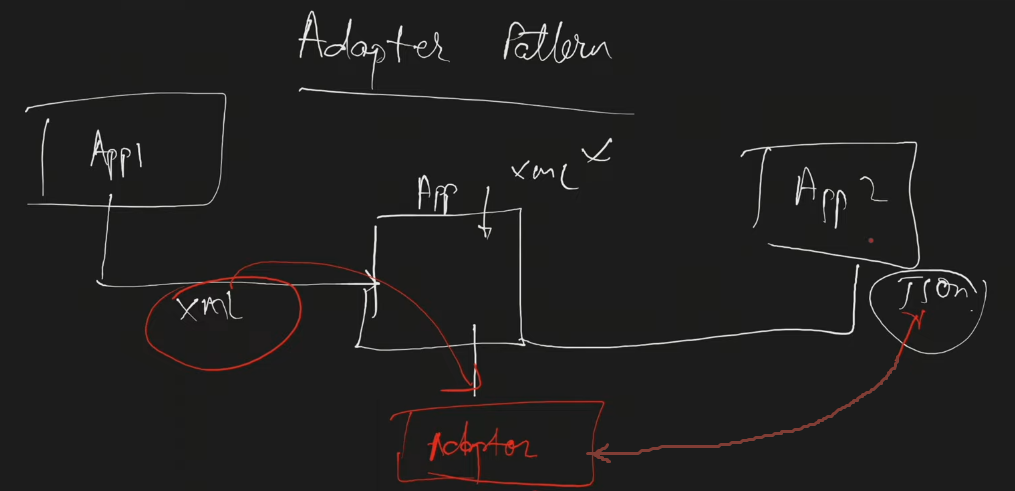 Adapter Pattern
App1
App
xml
App 2
xml
JSON
Adaptor